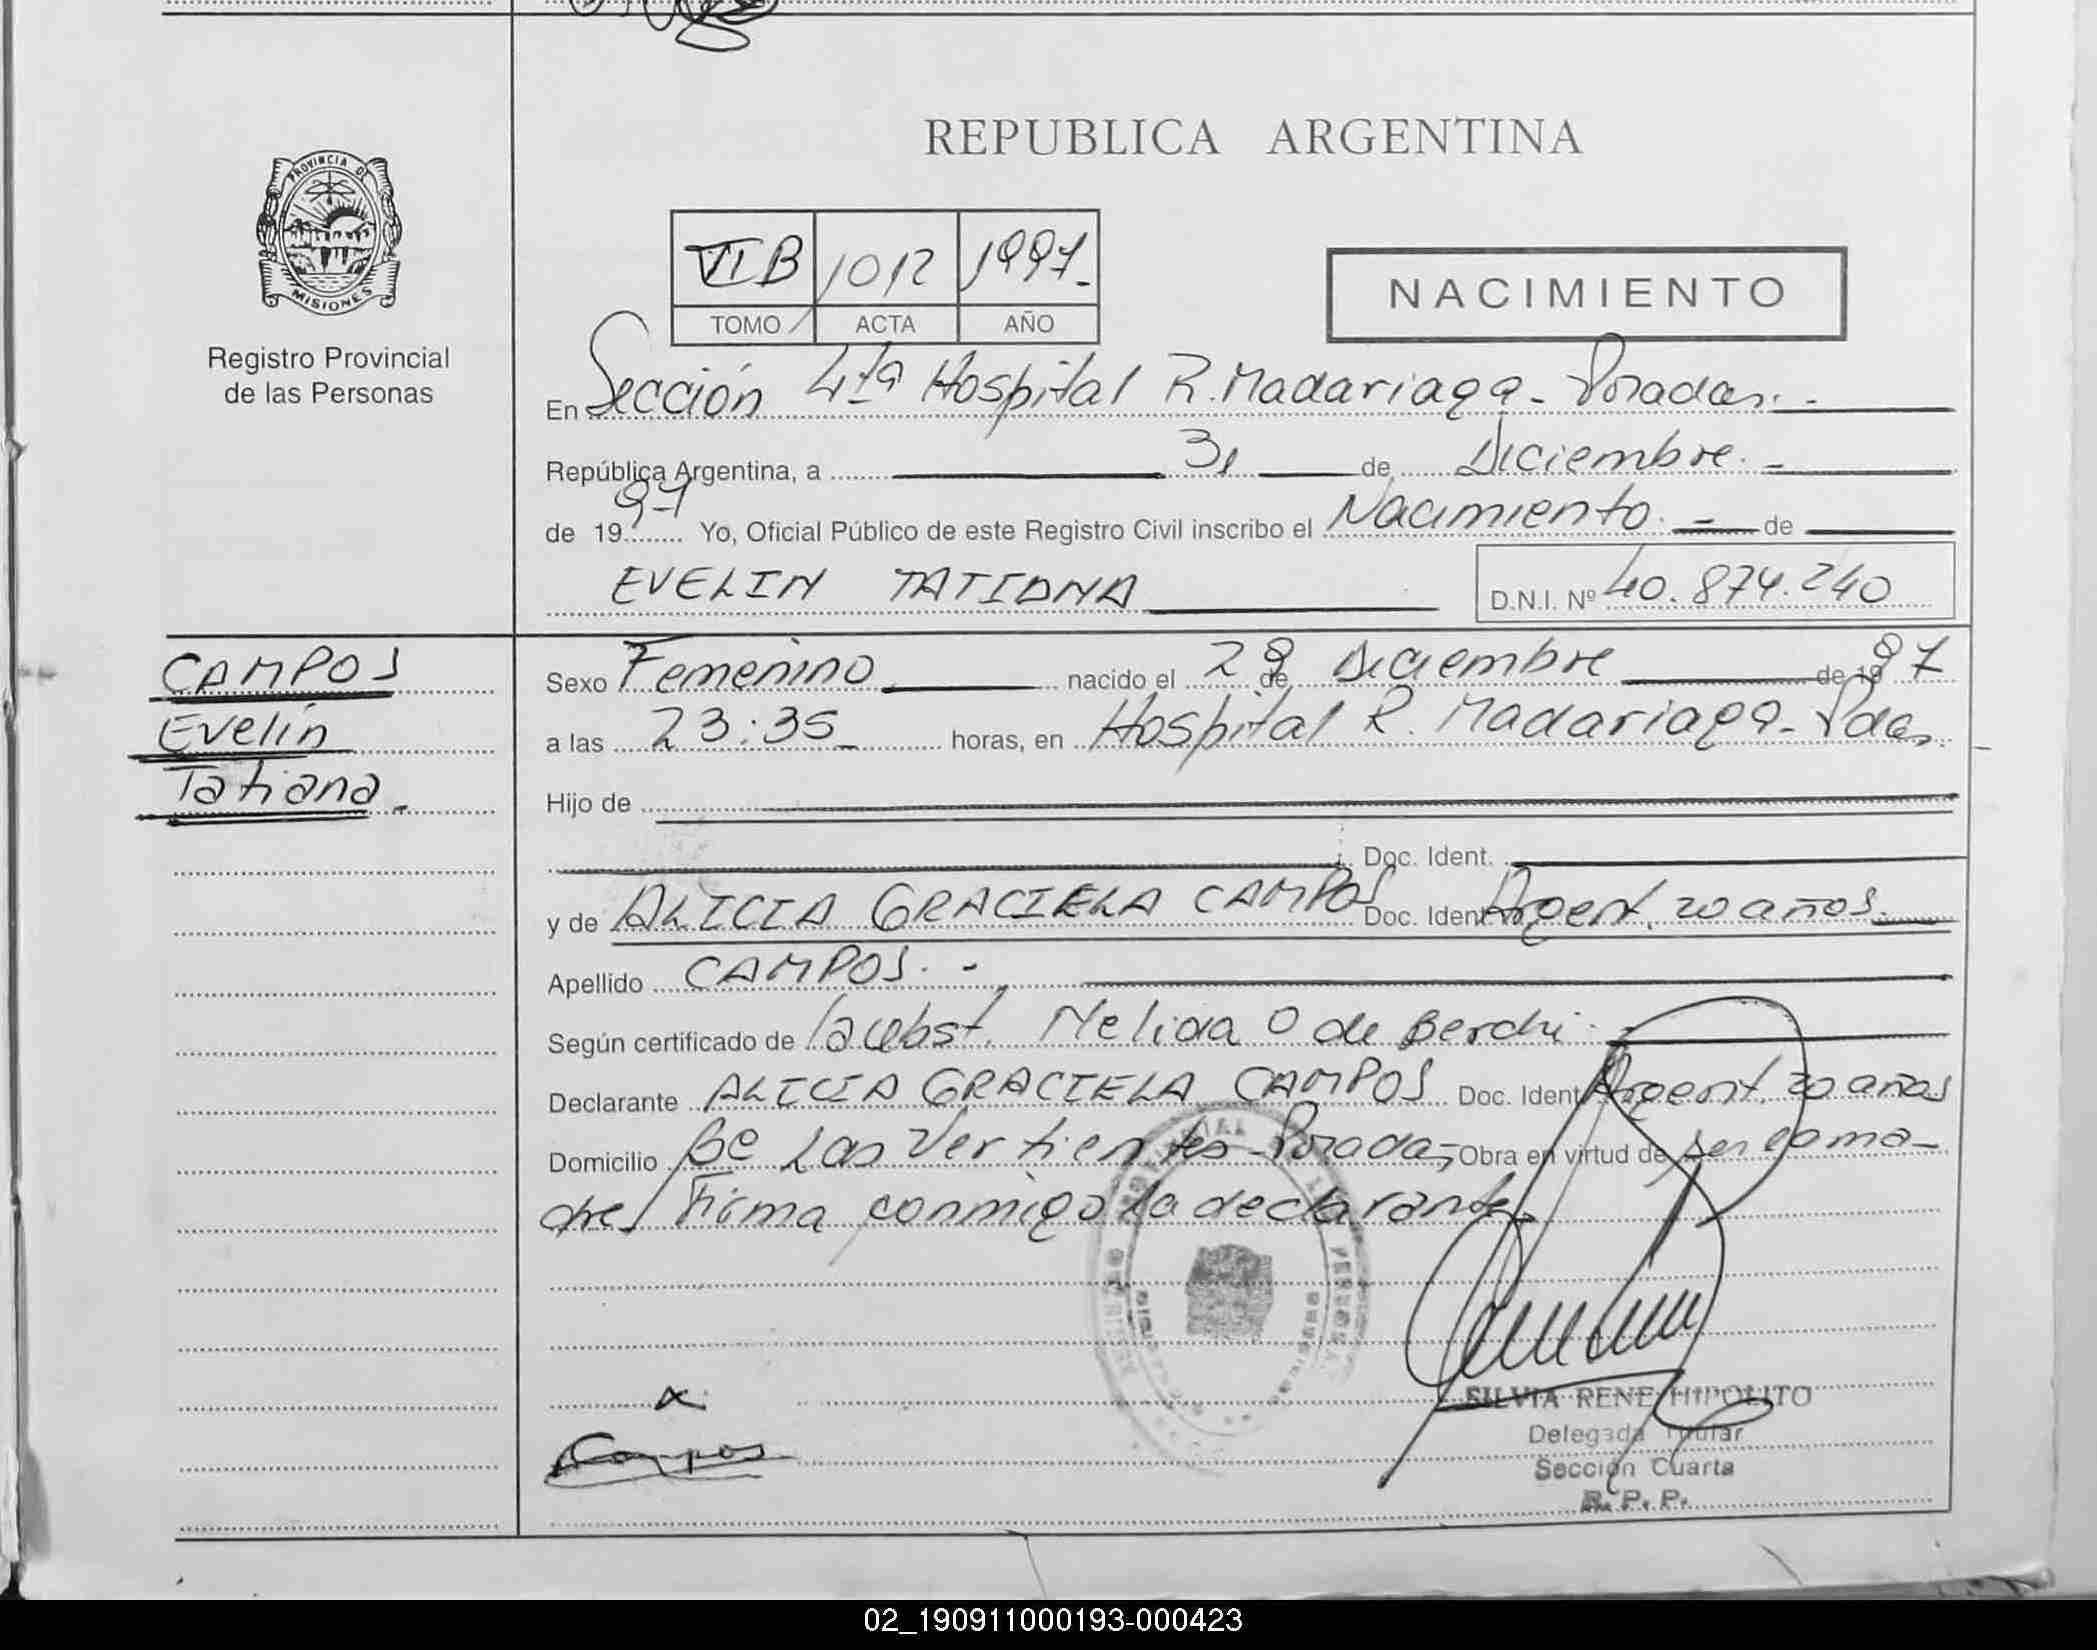 REPUBLICA ARGENTINA
PROVINCIA DE
MISIONES
Registro Provincial
de las Personas
VI B 1012 1997.
TOMO ACTA AÑO
NACIMIENTO
En Sección 4ta Hospital R. Madariaga - Posadas.-
República Argentina, a 31 de Diciembre.-
de 1997 Yo, Oficial Público de este Registro Civil inscribo el Nacimiento.- de
EVELIN TATIANA D.N.I. Nº 40.874.240
CAMPOS
Evelin
Tatiana.
Sexo Femenino nacido el 28 de Diciembre de 1997
a las 23:35 horas, en Hospital R. Madariaga - Pdas.
Hijo de
Doc. Ident.
y de ALICIA GRACIELA CAMPOS Doc. Ident. Argent. 20 años.
Apellido CAMPOS.-
Según certificado de la obst. Nelida O de Berchi.
Declarante ALICIA GRACIELA CAMPOS Doc. Ident. Argent. 20 años
Domicilio Bº Las Vertientes - Posadas, Obra en virtud de ser la ma-
dre/ Firma conmigo la declarante.
x
Campos
SILVIA RENE HIPOLITO
Delegada Titular
Sección Cuarta
R. P. P.
02_190911000193-000423